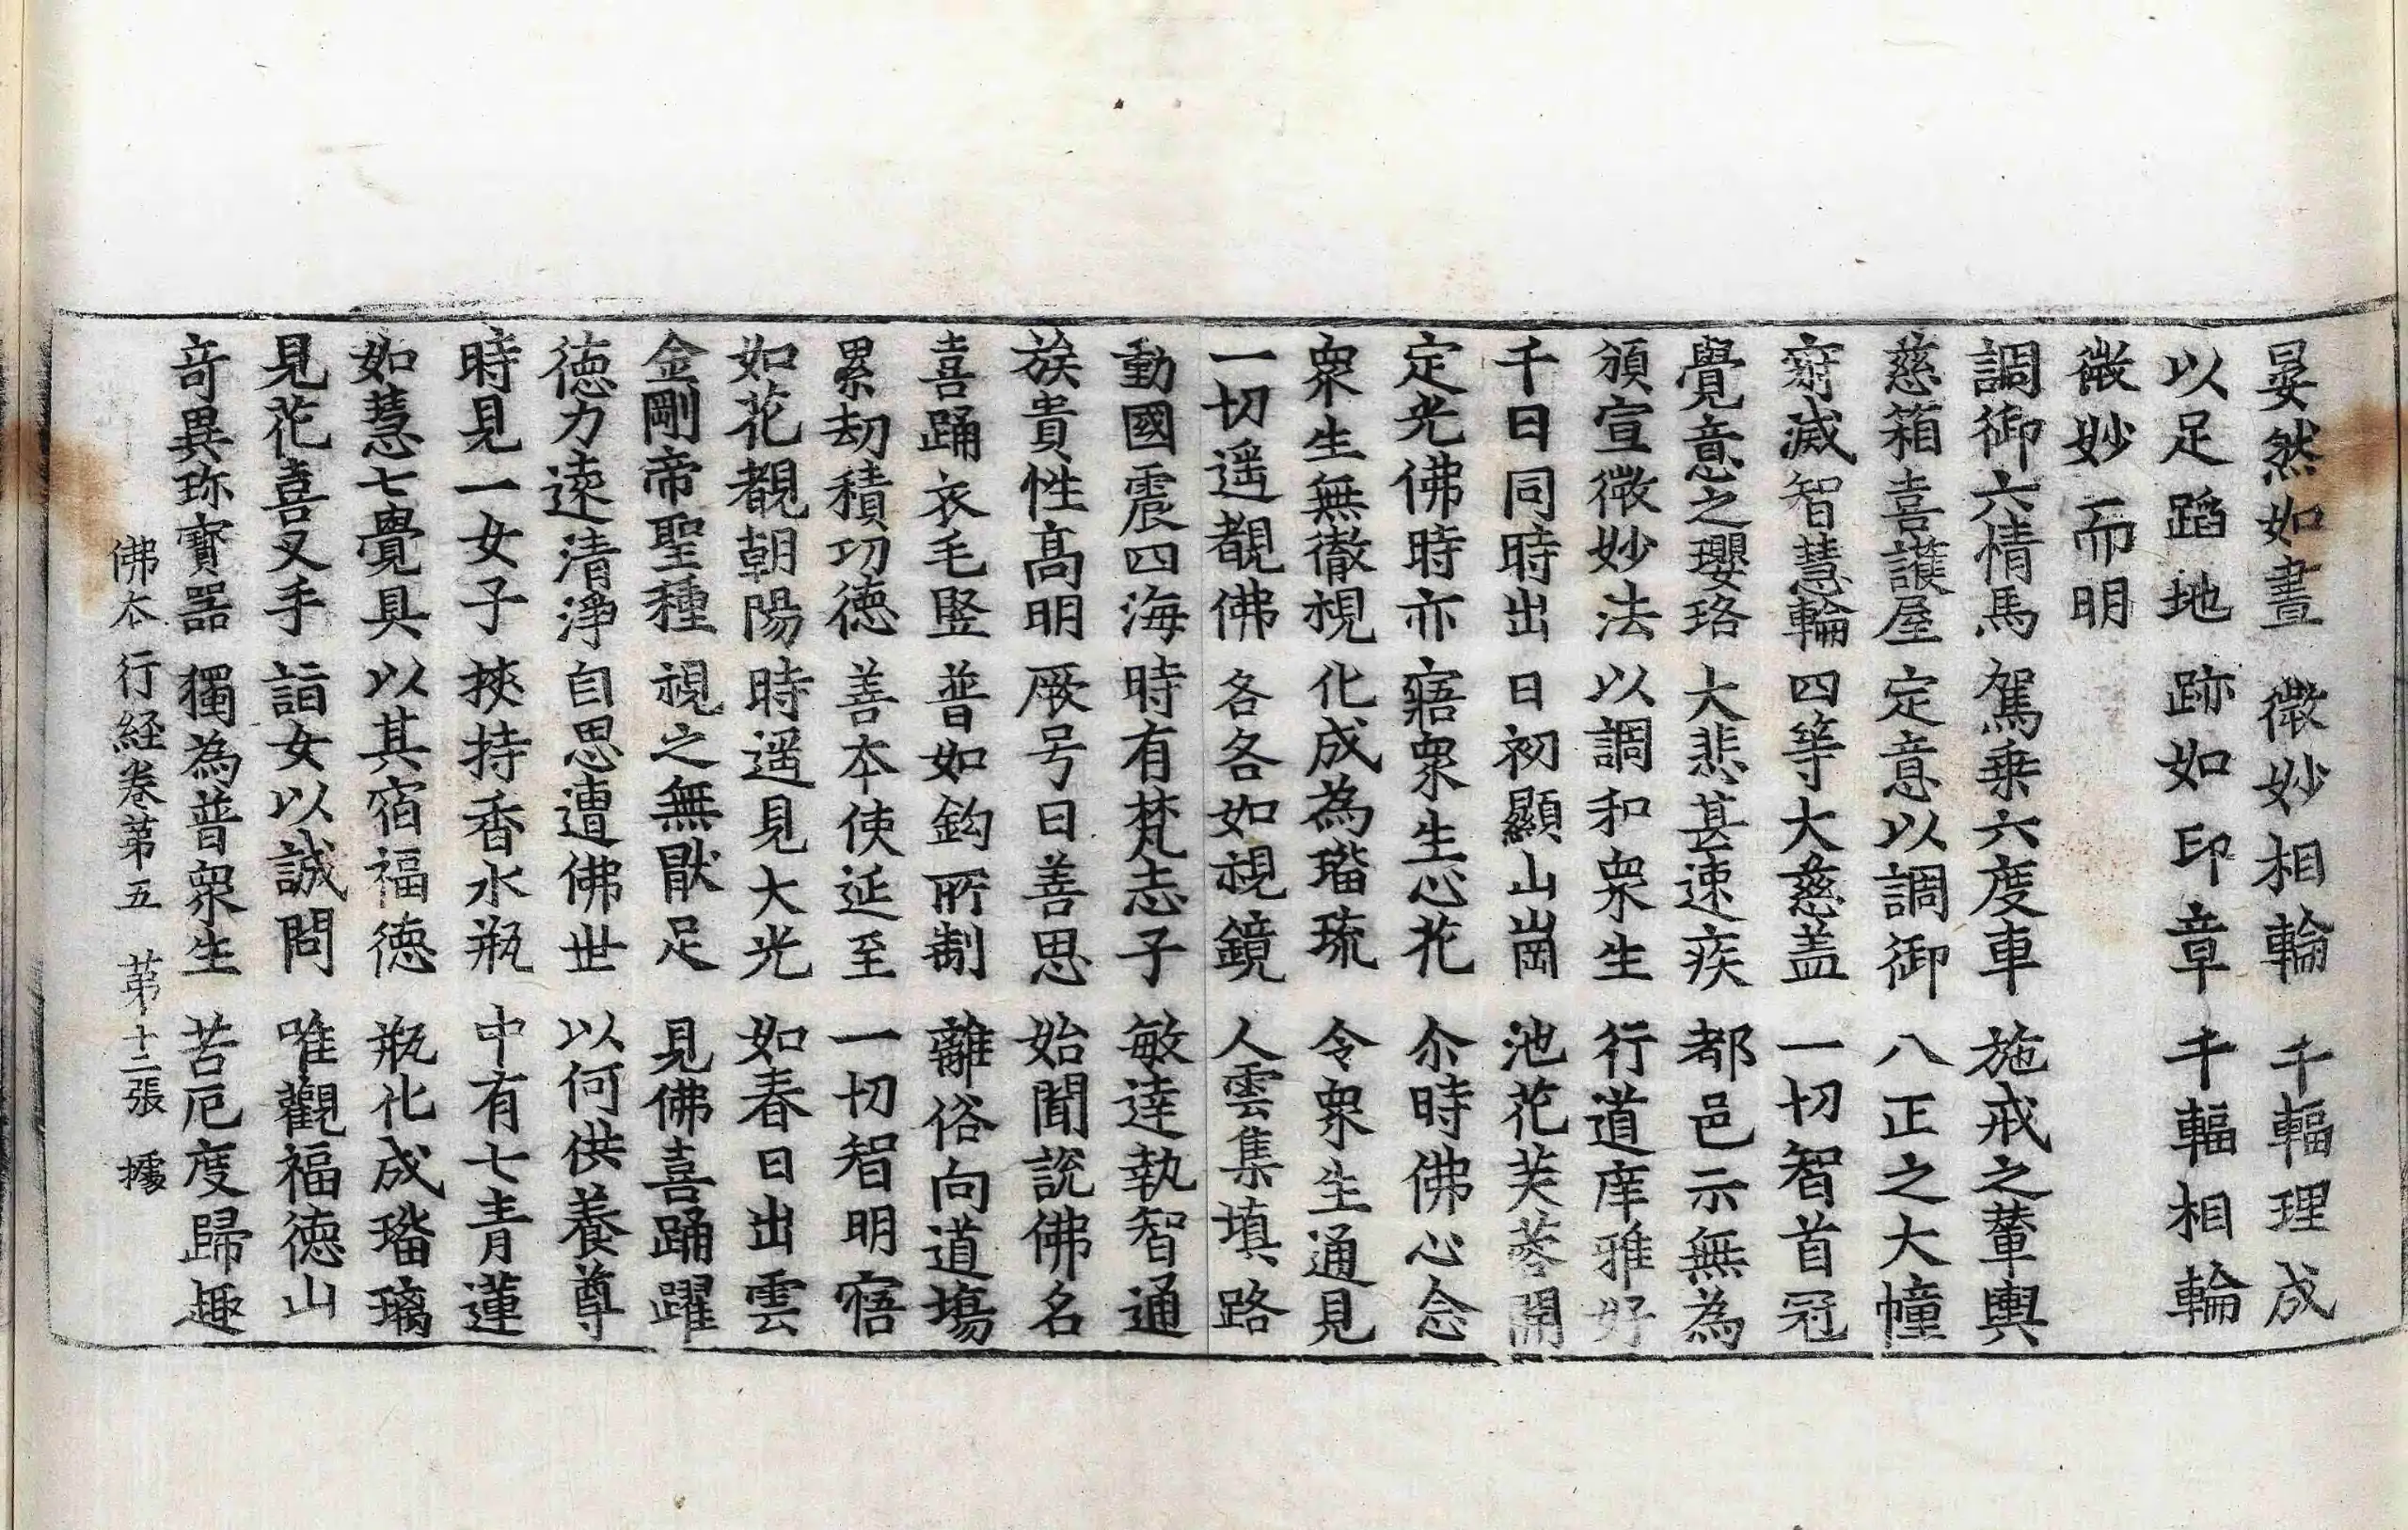 晏然如晝 微妙相輪 千輻理成
以足蹈地 跡如印章 千輻相輪
微妙而明
調御六情馬 駕乗六度車 施戒之輦輿
慈箱喜護屋 定意以調御 八正之大幢
窮滅智慧輪 四等大慈盖 一切智首冠
覺意之瓔珞 大悲甚速疾 都邑示無為
頒宣微妙法 以調和衆生 行道庠雅好
千日同時出 日初顯山崗 池花芙蓉開
定光佛時亦 寤衆生心花 尒時佛心念
衆生無徹視 化成為瑠琉 令衆生通見
一切遥覩佛 各各如視鏡 人雲集填路
動國震四海 時有梵志子 敏達執智通
族貴性髙明 厥号曰善思 始聞説佛名
喜踊衣毛竪 普如鈎所制 離俗向道場
累劫積功徳 善本使延至 一切智明寤
如花覩朝陽 時遥見大光 如春日出雲
金剛帝聖種 視之無猒足 見佛喜踊躍
徳力逺清淨 自思遭佛世 以何供養尊
時見一女子 挾持香水瓶 中有七青蓮
如慧七覺具 以其宿福徳 瓶化成瑠璃
見花喜叉手 詣女以誠問 唯觀福徳山
竒異珎寳器 獨為普衆生 苦厄度歸趣
佛本行経卷苐五 苐十二張 據